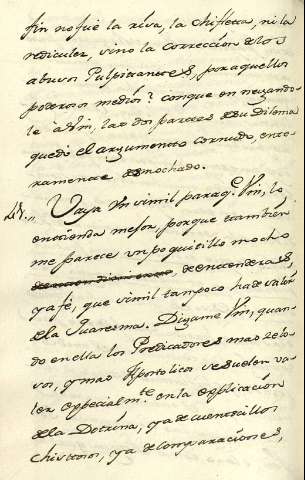 fin no fuè la riva, la chifleta, ni la
rediculez, vino la corrección de los
abusos Pulpitantes, por aquellos
poderosos medios? conque en negando
le à Vm, las dos partes de su Dilema
quedò el argumento cornudo, ente-
ramente desmochado.
Vaya Vn simil para q.e Vm, lo
entienda mejor porque tambien
me parece un poquitillo mocho
de entendederas,
y à fè, que simil tampoco ha de valer
de la Quaresma. Digame Vm, quan-
do en ella los Predicadores mas zelo-
sos, y mas Apostolicos se suelen va-
ler especialm.te en la explicación
de la Doctrina, ya de cuentecillos
chistosos, ya de comparaciones,